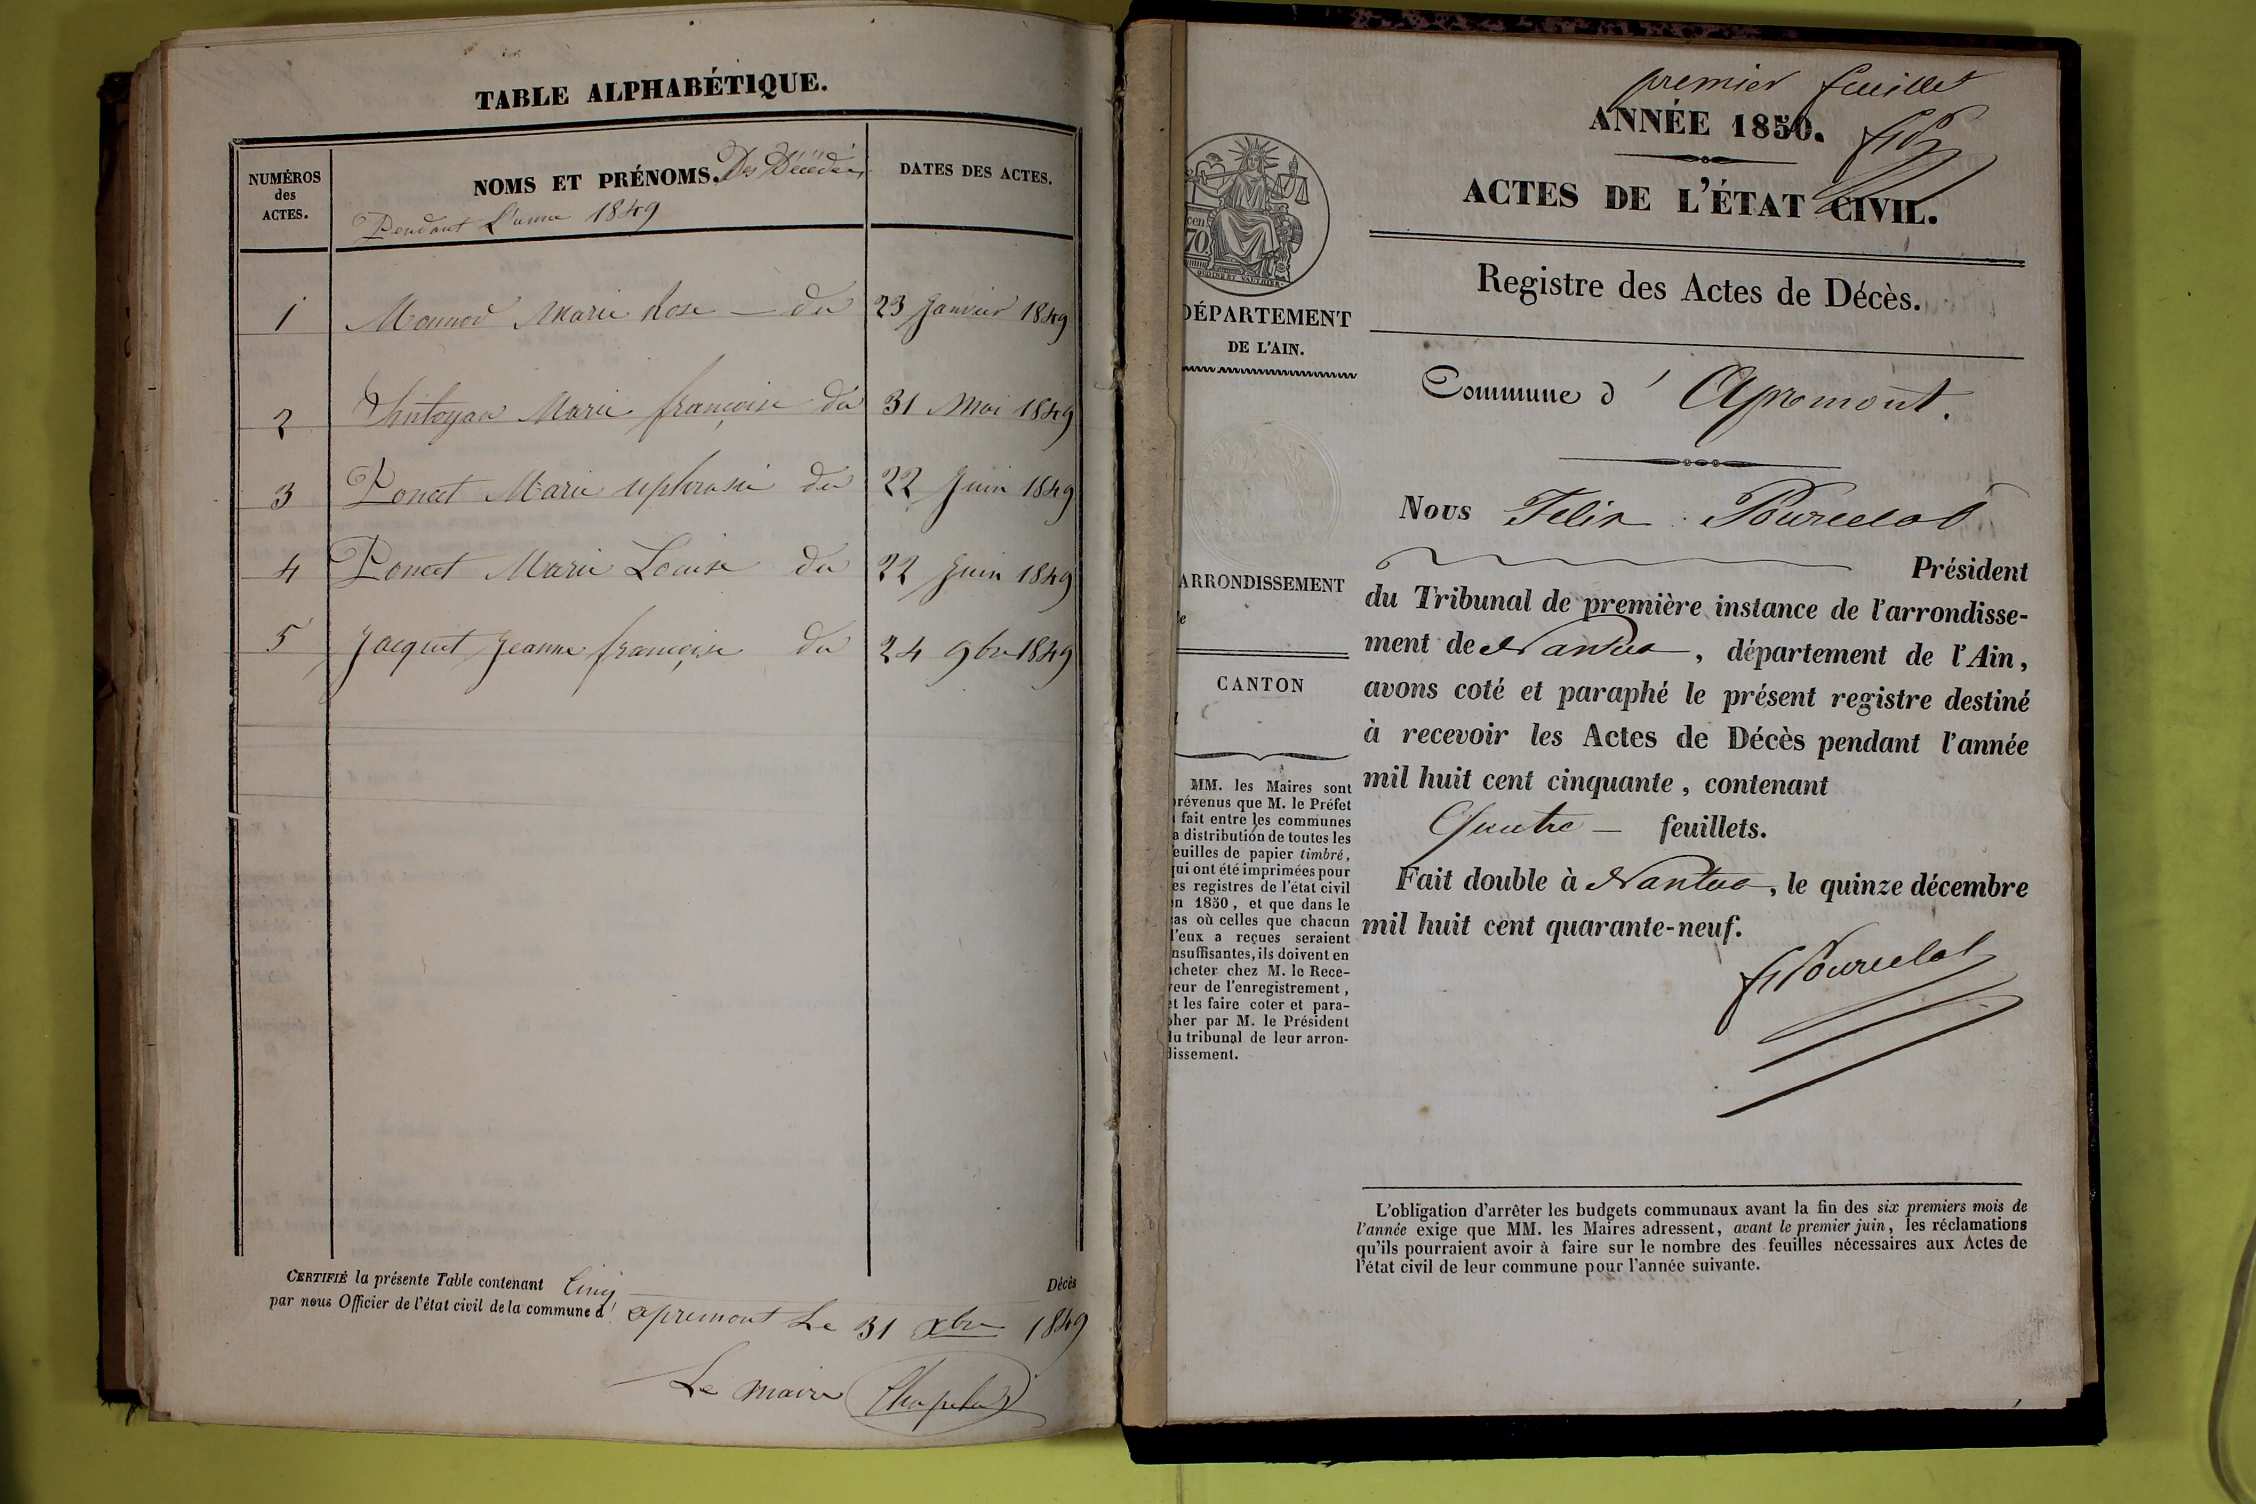 TABLE ALPHABÉTIQUE.
NUMÉROS
des
ACTES.
NOMS ET PRÉNOMS. Des Décédés
Pendant L'anne 1849
DATES DES ACTES.
1 Monnod Marie Rose — du 23 Janvier 1849
2 Marie françoise du 31 Mai 1849
3 Poncet Marie uphrasie du 22 Juin 1849
4 Poncet Marie Louise du 22 Juin 1849
5 Jacquet Jeanne françoise du 24 9bre 1849
CERTIFIÉ la présente Table contenant Cinq Décès
par nous Officier de l'état civil de la commune d' apremont Le 31 Xbre 1849
Le maire
premier feuillet
ANNÉE 1850.
ACTES DE L'ÉTAT CIVIL.
cen
70
DÉPARTEMENT
DE L'AIN.
Registre des Actes de Décès.
Commune d' Apremont.
Nous Felix Pourcelot
Président
du Tribunal de première instance de l'arrondisse-
ment de Nantua, département de l'Ain,
avons coté et paraphé le présent registre destiné
à recevoir les Actes de Décès pendant l'année
mil huit cent cinquante, contenant
Quatre — feuillets.
Fait double à Nantua, le quinze décembre
mil huit cent quarante-neuf.
f Pourcelot
ARRONDISSEMENT
CANTON
MM. les Maires sont
révenus que M. le Préfet
fait entre les communes
a distribution de toutes les
euilles de papier timbré,
ui ont été imprimées pour
es registres de l'état civil
n 1850, et que dans le
as où celles que chacun
'eux a reçues seraient
nsuffisantes, ils doivent en
cheter chez M. le Rece-
eur de l'enregistrement,
t les faire coter et para-
her par M. le Président
u tribunal de leur arron-
issement.
L'obligation d'arrêter les budgets communaux avant la fin des six premiers mois de
l'année exige que MM. les Maires adressent, avant le premier juin, les réclamations
qu'ils pourraient avoir à faire sur le nombre des feuilles nécessaires aux Actes de
l'état civil de leur commune pour l'année suivante.